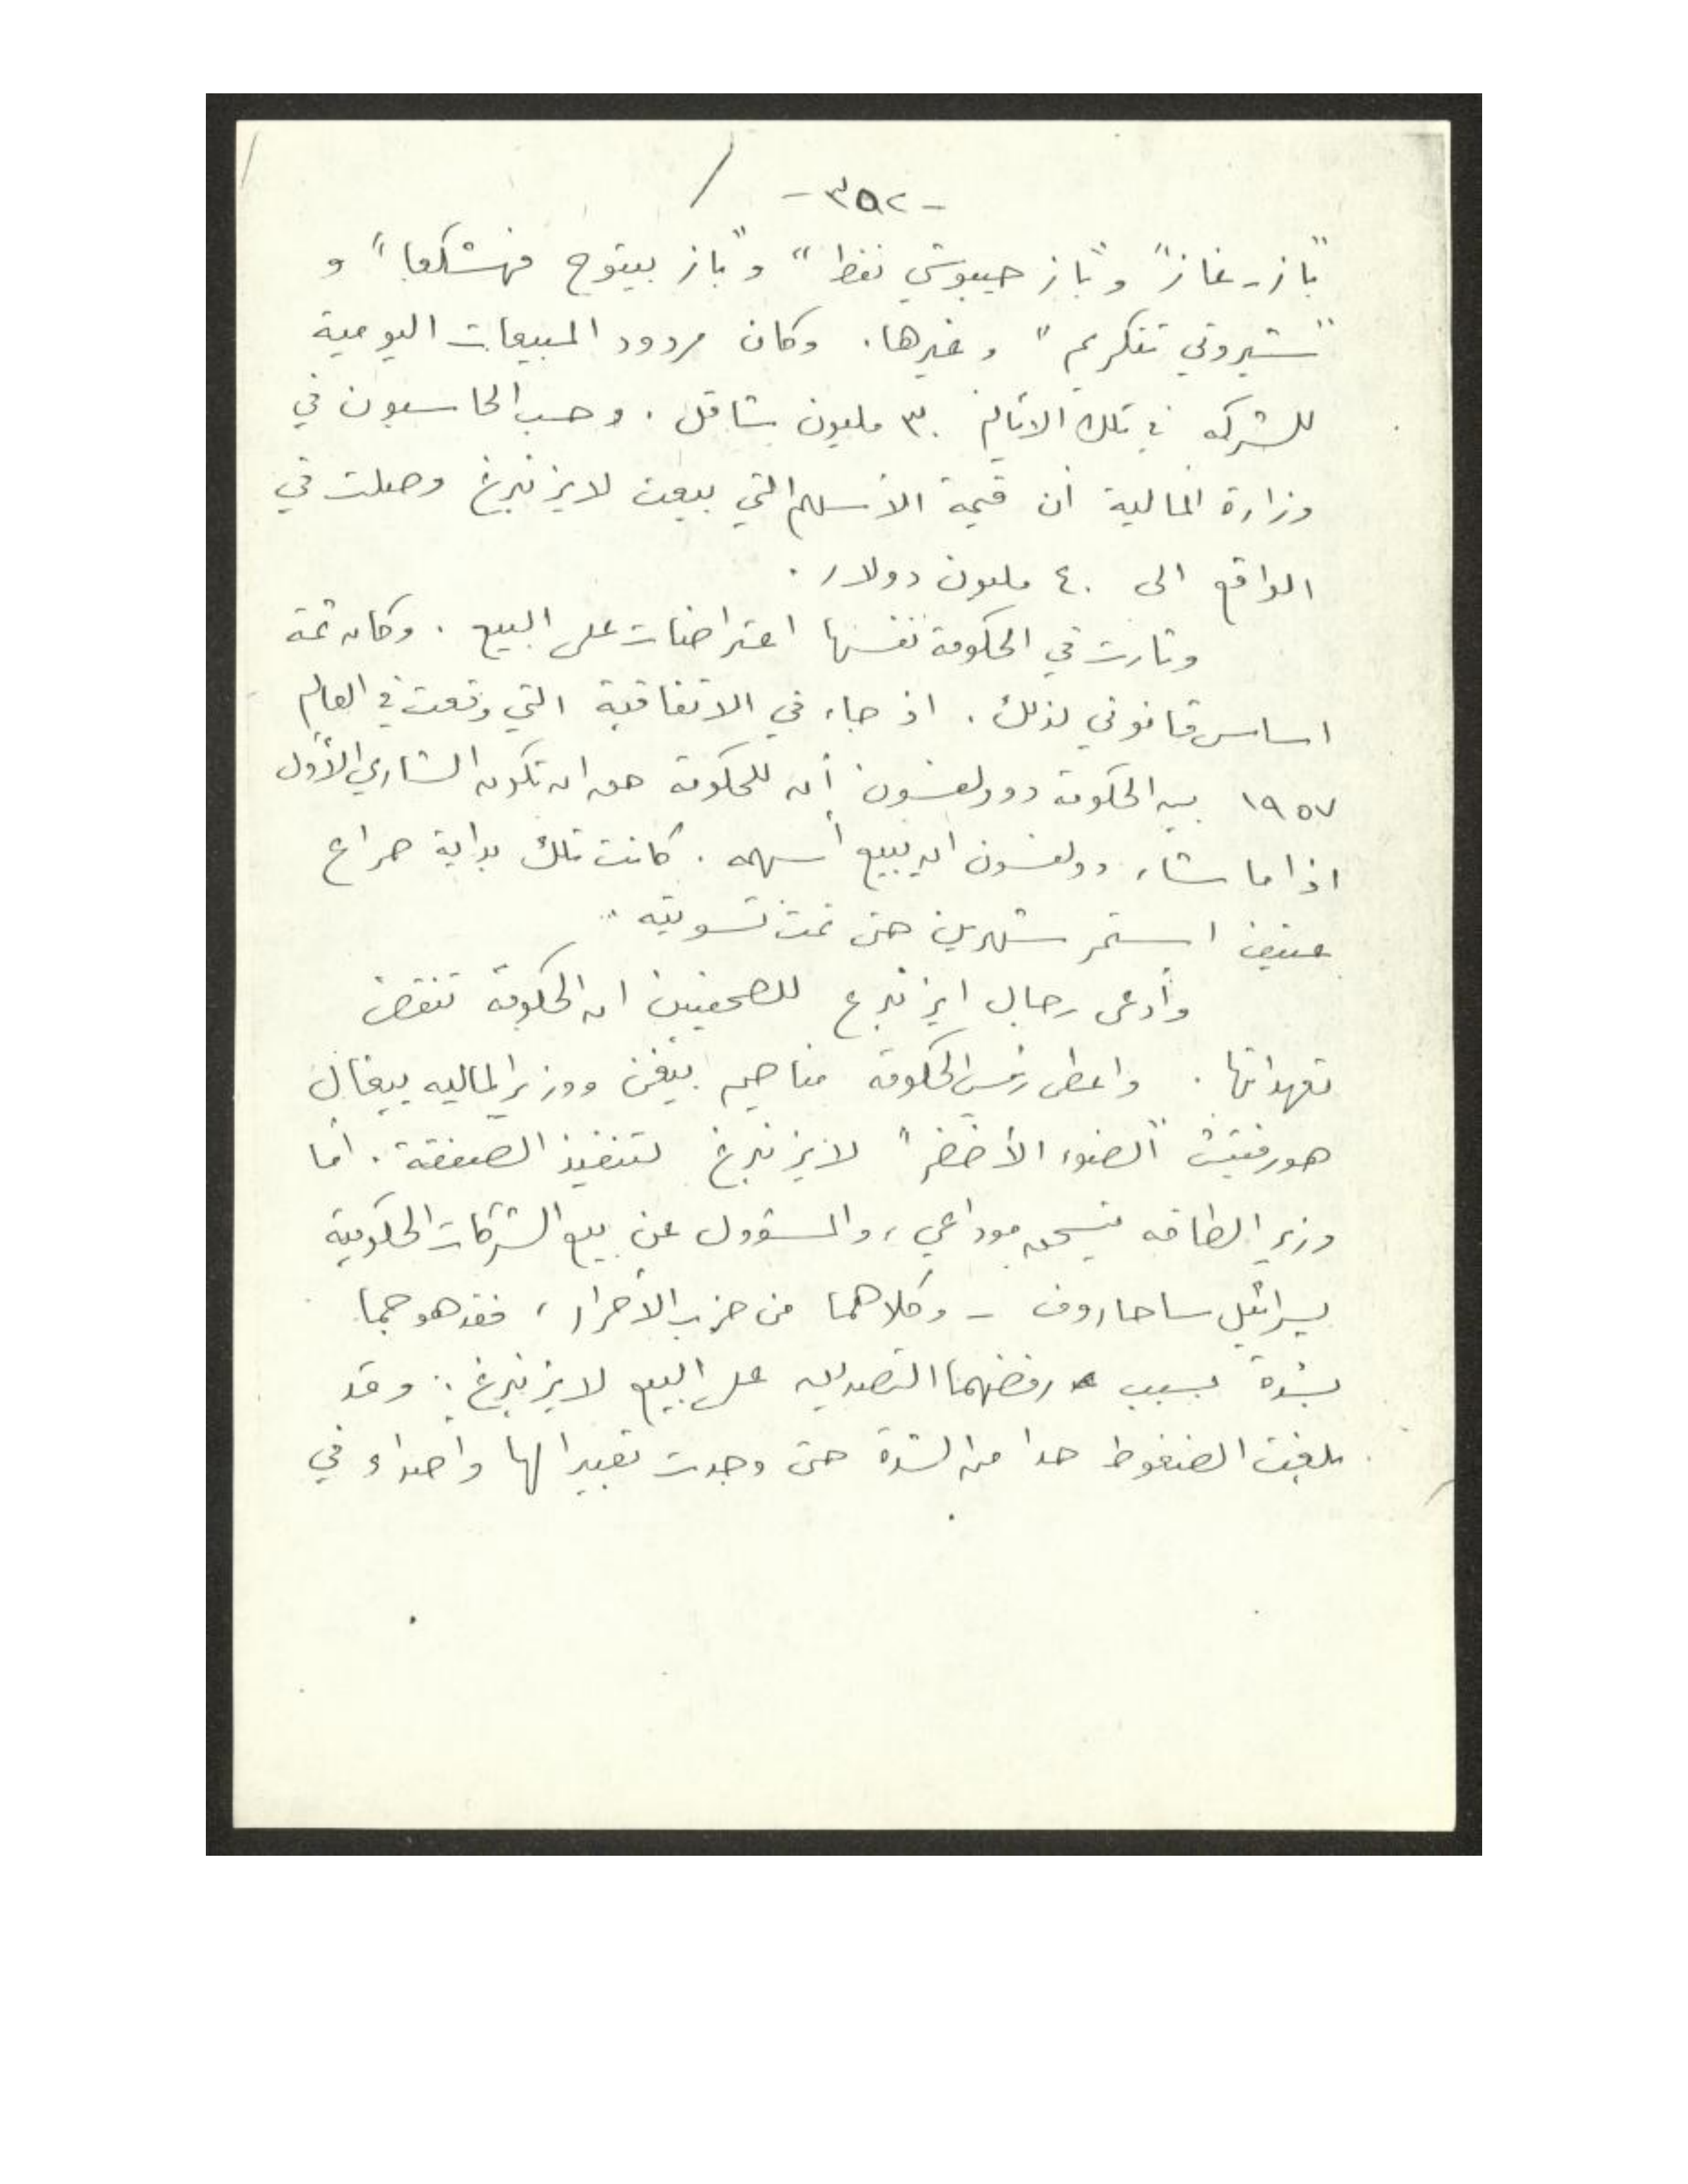 -٣٥٢-
"باز-غاز" و"باز حيبوشي نفط" و"باز بيتوح فهشكعا" و
"شيروتي تفكريم" وغيرها. وكان مردود المبيعات اليومية
للشركه في تلك الايام ٣٠ مليون شاقل. وحسب الحاسبون في
وزارة المالية أن قيمة الأسهم التي بيعت لايزنبرغ وصلت في
الواقع الى ٤٠ مليون دولار.
وثارت في الحكومة نفسها اعتراضات على البيع. وكان ثمة
اساس قانوني لذلك. اذ جاء في الاتفاقية التي وقعت في العام
١٩٥٧ بين الحكومة وولفسون أن للحكومة حق ان تكون الشاري الأول
اذا ما شاء وولفسون ان يبيع أسهمه. كانت تلك بداية صراع
عنيف استمر شهرين حتى تمت تسويته.
وأدعى رجال ايزنبرغ للصحفيين ان الحكومة تنقض
تعهداتها. واعطى رئيس الحكومة مناحيم بيغن ووزير الماليه ييغال
هورفيتش "الضوء الأخضر" لايزنبرغ لتنفيذ الصفقة. أما
وزير الطاقه يتسحق موداعي، والمسؤول عن بيع الشركات الحكومية
يسرائيل ساحاروف - وكلاهما من حزب الأحرار، فقد هوجما
بشدة بسبب رفضهما التصديق على البيع لايزنبرغ. وقد
بلغت الضغوط حدا من الشدة حتى وجدت تعبيرا لها واصداء في